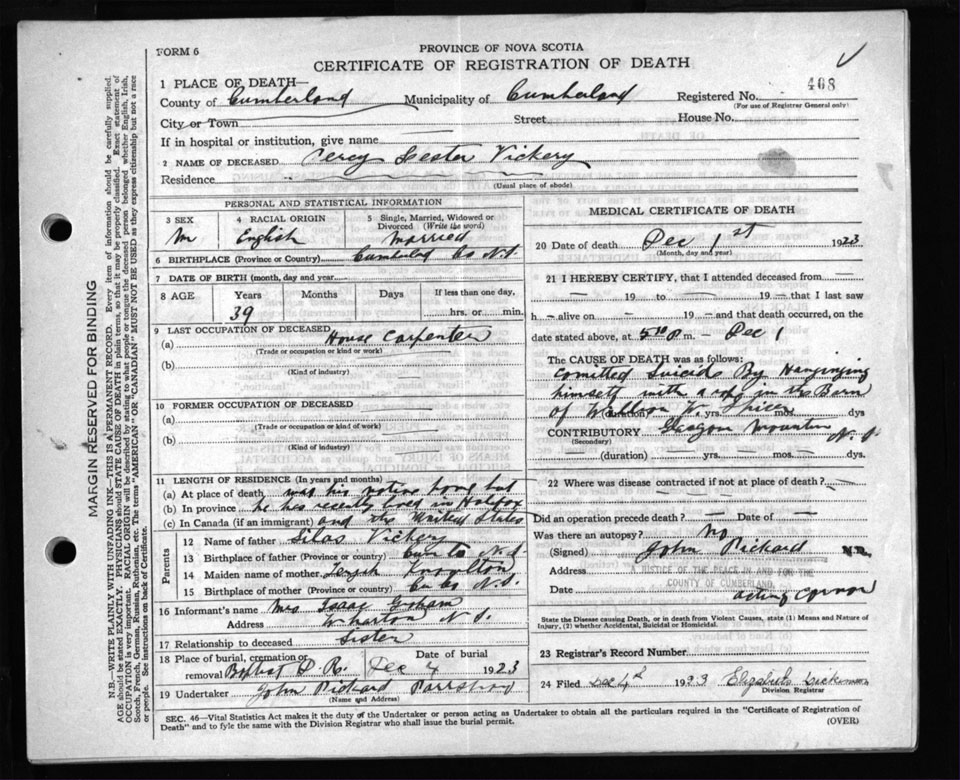 FORM 6
PROVINCE OF NOVA SCOTIA
CERTIFICATE OF REGISTRATION OF DEATH
1 PLACE OF DEATH—
County of Cumberland Municipality of Cumberland Registered No. 408
(For use of Registrar General only)
City or Town Street House No.
If in hospital or institution, give name
2 NAME OF DECEASED Percy Lester Vickery
Residence
(Usual place of abode)
PERSONAL AND STATISTICAL INFORMATION
3 SEX 4 RACIAL ORIGIN 5 Single, Married, Widowed or Divorced (Write the word)
M English Married
6 BIRTHPLACE (Province or Country) Cumberland Co N.S.
7 DATE OF BIRTH (month, day and year)
8 AGE Years Months Days If less than one day,
39 hrs. or min.
9 LAST OCCUPATION OF DECEASED
(a) House Carpenter
(Trade or occupation or kind or work)
(b)
(Kind of industry)
10 FORMER OCCUPATION OF DECEASED
(a)
(Trade or occupation or kind of work)
(b)
(Kind of industry)
11 LENGTH OF RESIDENCE (In years and months)
(a) At place of death was his native home but
(b) In province he has recently lived in Halifax
(c) In Canada (if an immigrant) and the United States
Parents
12 Name of father Silas Vickery
13 Birthplace of father (Province or country) Cum Co N.S.
14 Maiden name of mother Knowlton
15 Birthplace of mother (Province or country) Cu Co N.S.
16 Informant's name Mrs Isaac Graham
Address Wharton N.S.
17 Relationship to deceased Sister
18 Place of burial, cremation or removal Date of burial
Baptist Dec 4 1923
19 Undertaker John Rickard Parrsboro
(Name and Address)
MEDICAL CERTIFICATE OF DEATH
20 Date of death Dec 1st 1923
(Month, day and year)
21 I HEREBY CERTIFY, that I attended deceased from —
— 19 — to — 19 — that I last saw
h — alive on — 19 — and that death occurred, on the
date stated above, at m. Dec 1
The CAUSE OF DEATH was as follows:
Comitted Suicide By Hanginging
himself with a rope in the Barn
of W. Spicer
(duration) yrs. mos. dys
CONTRIBUTORY Mountin N.S.
(Secondary)
— (duration) — yrs. — mos — dys.
22 Where was disease contracted if not at place of death? —
Did an operation precede death? — Date of —
Was there an autopsy? No
(Signed) John Rickard M.D.
Address A JUSTICE OF THE PEACE IN AND FOR THE
COUNTY OF CUMBERLAND
Date acting Cornor
State the Disease causing Death, or in death from Violent Causes, state (1) Means and Nature of Injury, (2) whether Accidental, Suicidal or Homicidal.
23 Registrar's Record Number
24 Filed Dec 4th 1923 Elizabeth
Division Registrar
SEC. 46—Vital Statistics Act makes it the duty of the Undertaker or person acting as Undertaker to obtain all the particulars required in the "Certificate of Registration of
Death" and to fyle the same with the Division Registrar who shall issue the burial permit. (OVER)
MARGIN RESERVED FOR BINDING
N.B.—WRITE PLAINLY WITH UNFADING INK—THIS IS A PERMANENT RECORD. Every item of information should be carefully supplied.
AGE should be stated EXACTLY. PHYSICIANS should STATE CAUSE OF DEATH in plain terms, so that it may be properly classified. Exact statement of
OCCUPATION is very important. RACIAL ORIGIN will be described by stating to what people or tongue the deceased person belonged whether English, Irish,
Scotch, French, German, Russian, Ruthenian, etc. The terms "AMERICAN" OR "CANADIAN" MUST NOT BE USED as they express citizenship but not a race
or people. See instructions on back of Certificate.